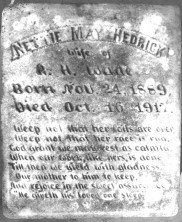 NETTIE MAY HEDRICK
Wife of
Born Nov. 24, 1889.
Died Oct. 191
Weep not that her toils are over
Weep not that her race is run.
God grant we may rest as calmly
When our work, like hers, is done.
Till then we yield with gladness
Our mother to him to keep.
And rejoice in the sweet assurance
He giveth his loved one sleep.